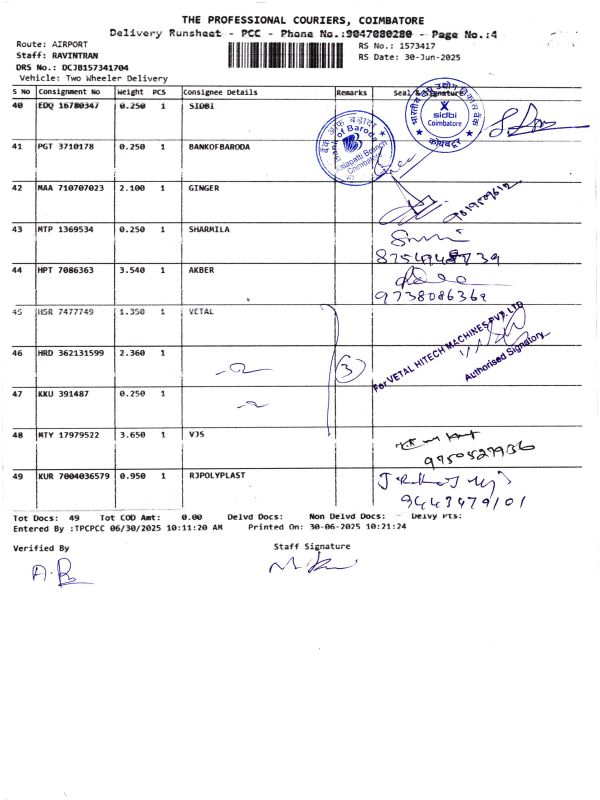 THE PROFESSIONAL COURIERS, COIMBATORE
Delivery Runsheet - PCC - Phone No.:9047080280 - Page No.:4
Route: AIRPORT
RS No.: 1573417
Staff: RAVINTRAN
RS Date: 30-Jun-2025
DRS No.: DCJB157341704
Vehicle: Two Wheeler Delivery
S No Consignment No Weight PCS Consignee Details Remarks Seal & Signature
40 EDQ 16780347 0.250 1 SIDBI
sidbi
Coimbatore
कोयंबटूर
41 PGT 3710178 0.250 1 BANKOFBARODA
बैंक ऑफ़ बड़ौदा
Bank of Baroda
Kalapatti Branch
Coimbatore
42 MAA 710707023 2.100 1 GINGER
43 MTP 1369534 0.250 1 SHARMILA
44 HPT 7086363 3.540 1 AKBER
45 HSR 7477749 1.350 1 VETAL
46 HRD 362131599 2.360 1
3
For VETAL HITECH MACHINES PVT. LTD
Authorised Signatory
47 KKU 391487 0.250 1
48 MTY 17979522 3.650 1 VJS
9750527936
49 KUR 7004036579 0.950 1 RJPOLYPLAST
9443479101
Tot Docs: 49 Tot COD Amt: 0.00 Delvd Docs: Non Delvd Docs: Delvy Pts:
Entered By :TPCPCC 06/30/2025 10:11:20 AM Printed On: 30-06-2025 10:21:24
Verified By Staff Signature